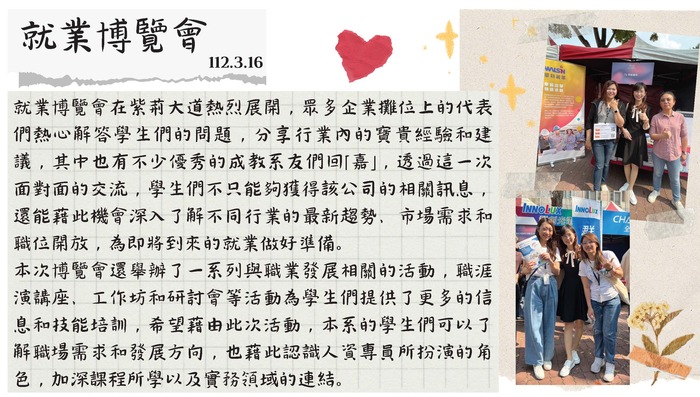 就業博覽會
112.3.16
就業博覽會在紫荊大道熱烈展開，眾多企業攤位上的代表
們熱心解答學生們的問題，分享行業內的寶貴經驗和建
議，其中也有不少優秀的成教系友們回「嘉」，透過這一次
面對面的交流，學生們不只能夠獲得該公司的相關訊息，
還能藉此機會深入了解不同行業的最新趨勢、市場需求和
職位開放，為即將到來的就業做好準備。
本次博覽會還舉辦了一系列與職業發展相關的活動，職涯
演講座、工作坊和研討會等活動為學生們提供了更多的信
息和技能培訓，希望藉由此次活動，本系的學生們可以了
解職場需求和發展方向，也藉此認識人資專員所扮演的角
色，加深課程所學以及實務領域的連結。
WALSIN
INNOLUX
INNOLUX